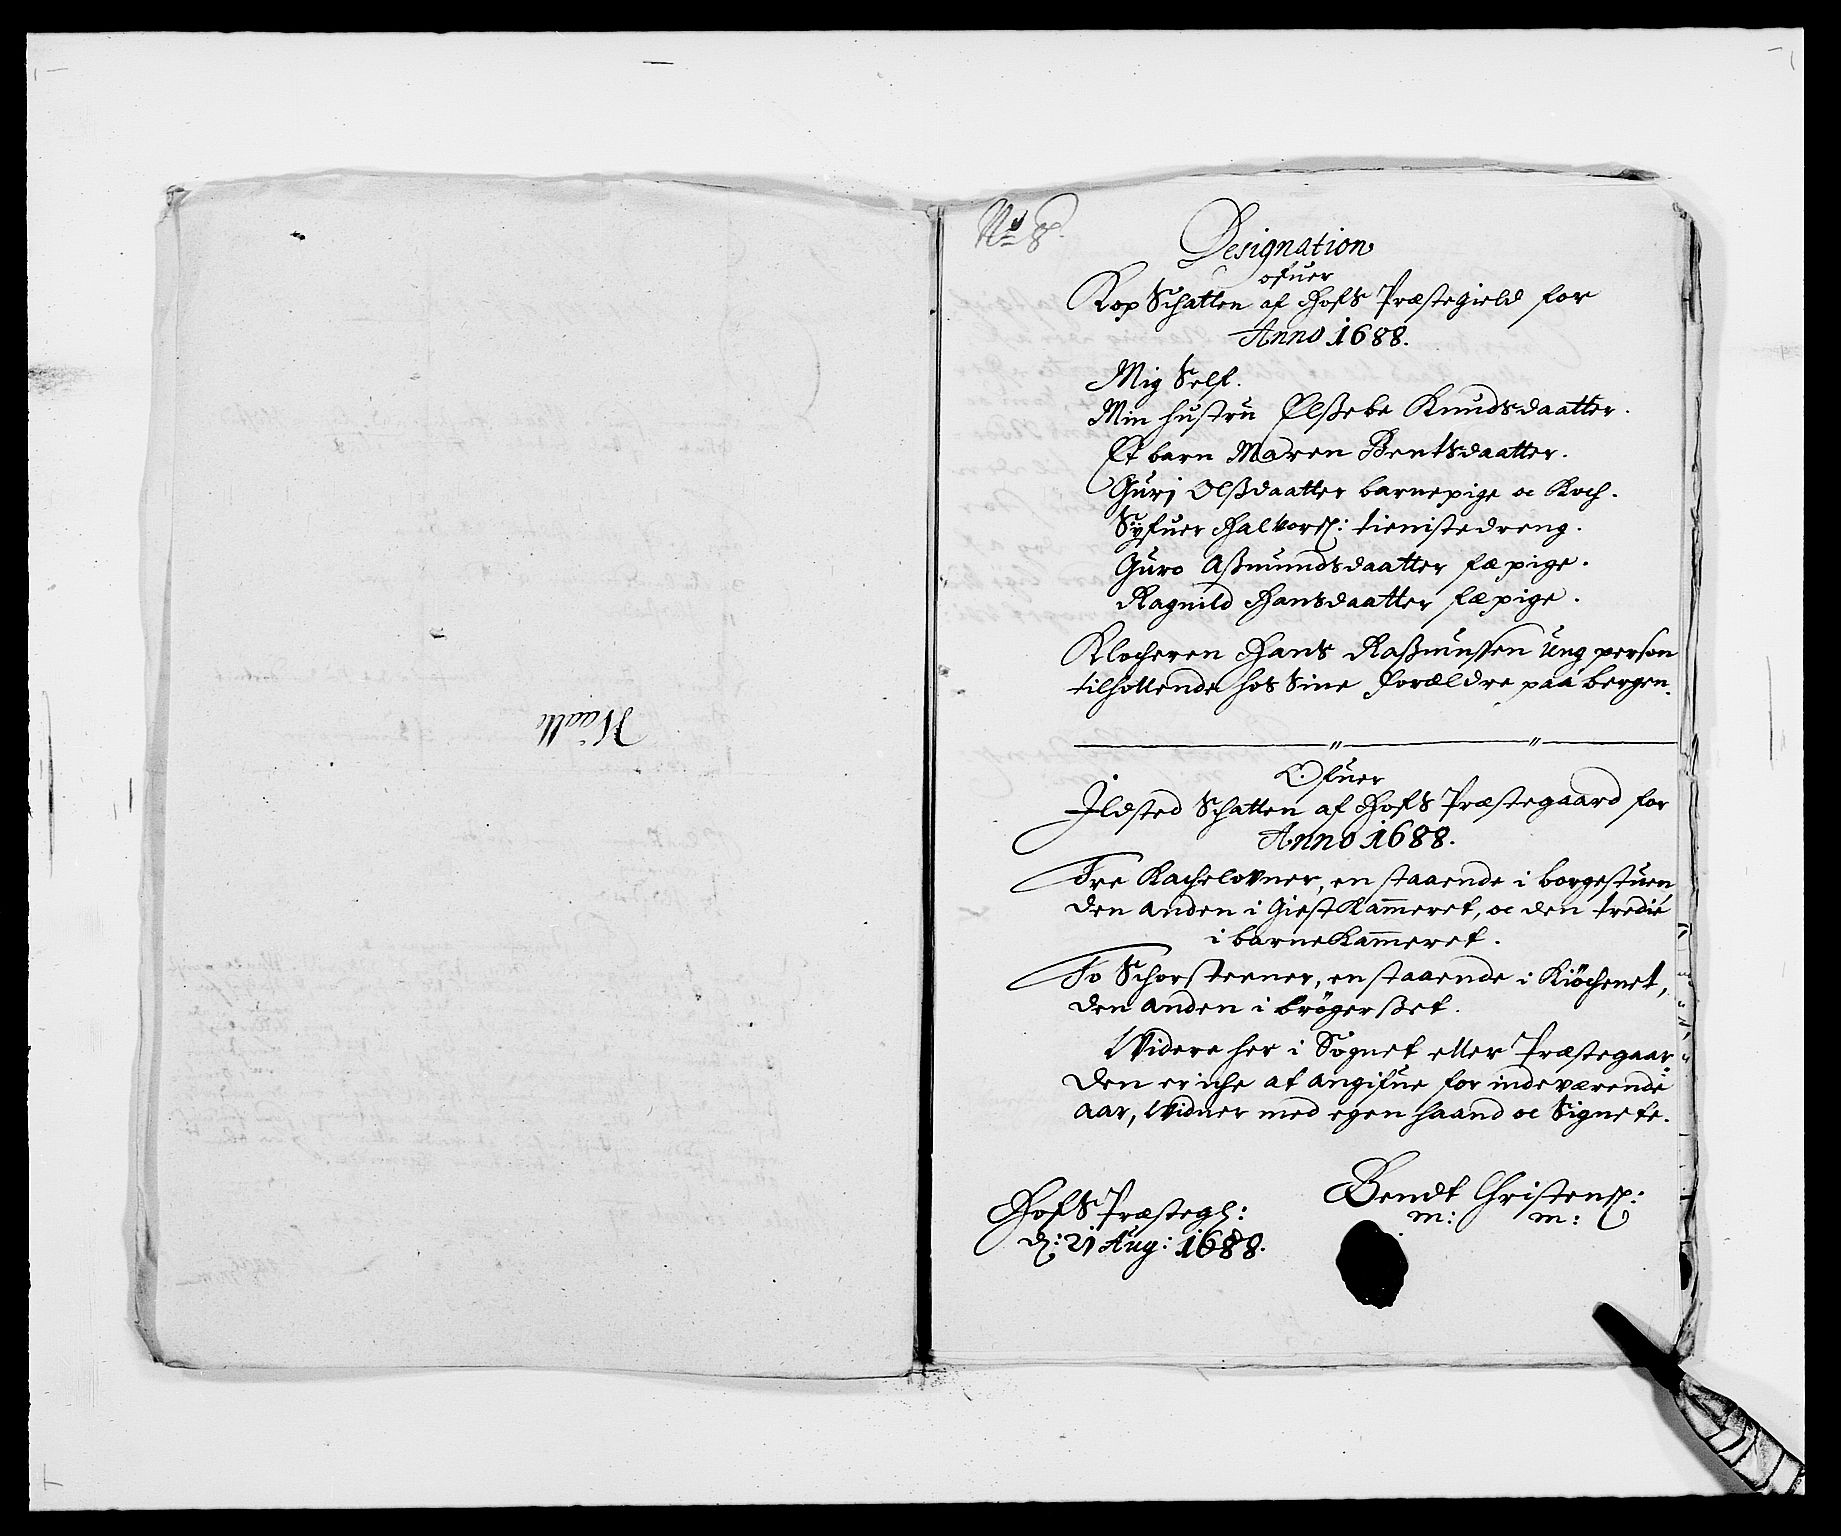 No 8.
Designation
ofuer
Kop Schatten af Hofs Præstegield for
Anno 1688.
Mig Self.
Min hustru Elßebe Knudsdaatter.
Et barn Maren Bentsdaatter.
Guri Olßdaatter barnepige oc Koch.
Syfuer Halvorß: tienistedreng.
Guro Aßmundsdaatter fæpige.
Ragnild Hansdaatter fæpige.
Klocheren Hans Raßmussen Ung person
tilhollende hos Sine Forældre paa bergen.
Ofuer
Ildsted Schatten af Hofs Præstegaard for
Anno 1688.
Tre Kachelovner, en staaende i borgestuen,
den anden i Giestkam̄eret, oc den tredie
i barnekam̄eret.
To Schorsteener, en staaende i Kiöchenet,
den anden i brögerßet.
Widere her i Sognet eller Præstegaar-
den er iche at angifue for indeværende
aar, Widner med egen haand oc Signete.
Hofs Præsteg:
d: 21 Aug: 1688.
Bendt Christenß:
m: m: